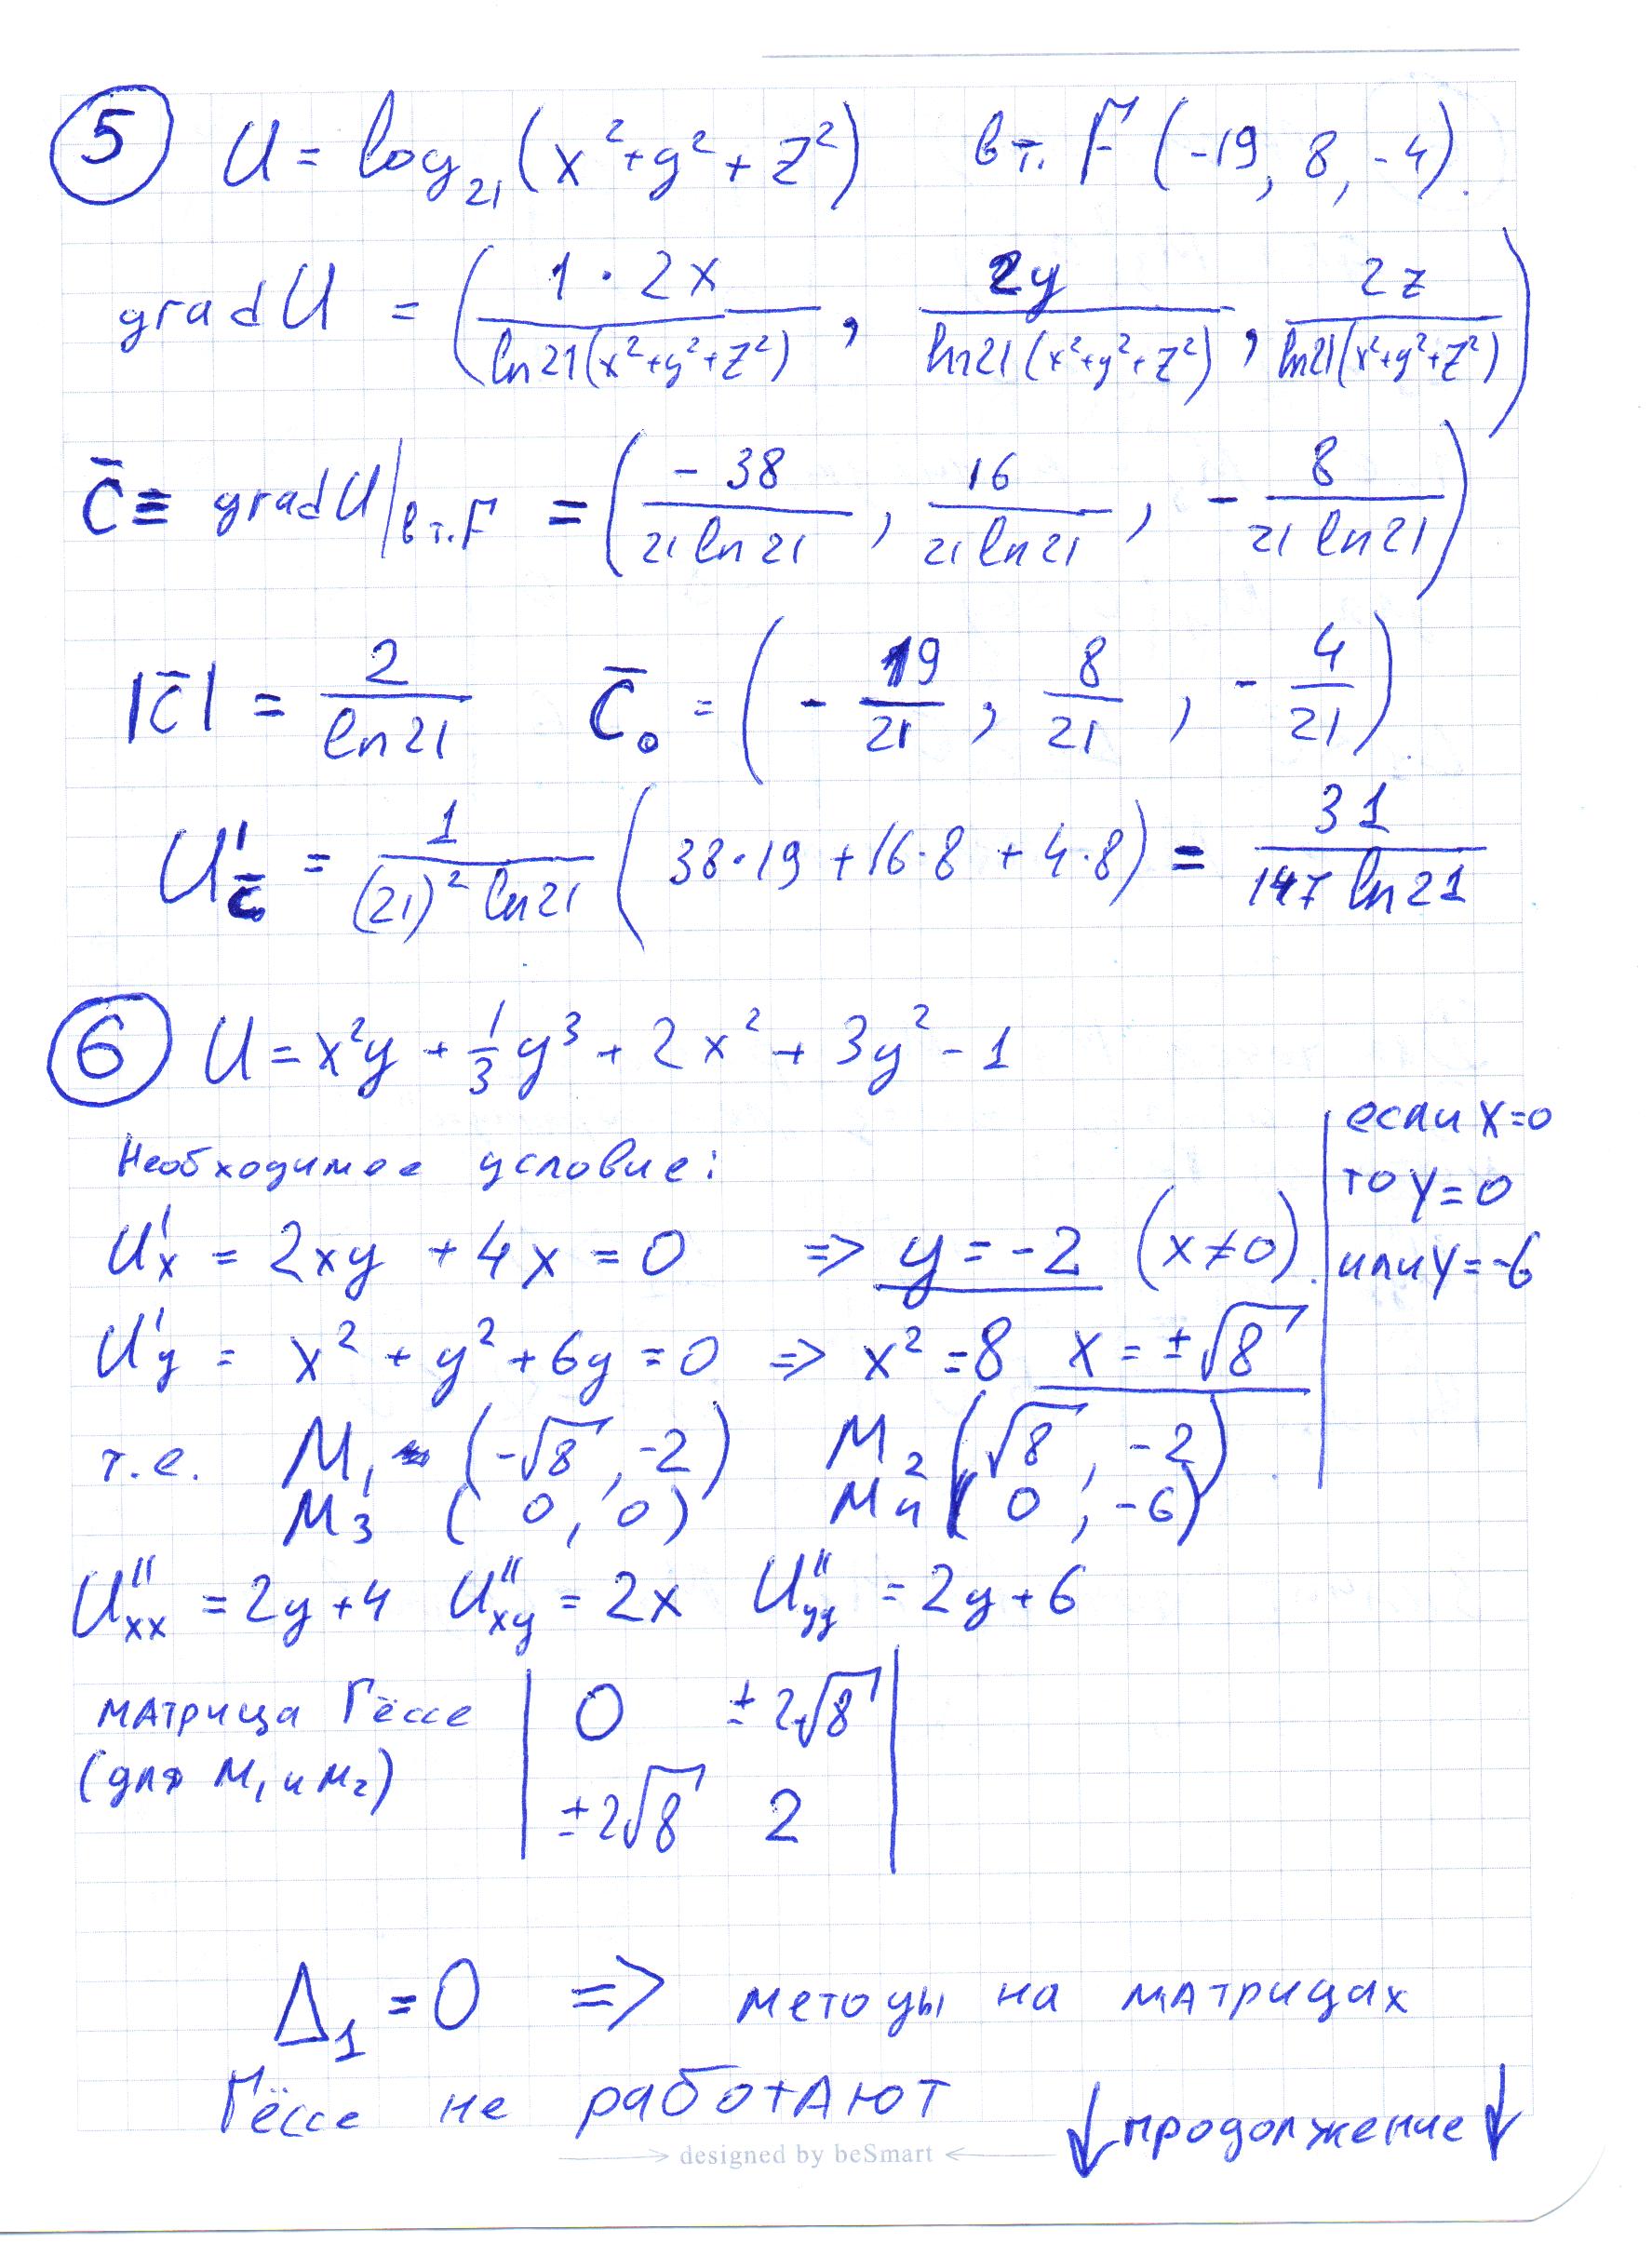 5 U = log₂₁(x²+y²+z²) в т. F (-19, 8, -4).
grad U = ( 1·2x / ln21(x²+y²+z²) , 2y / ln21(x²+y²+z²) , 2z / ln21(x²+y²+z²) )
c̄ ≡ grad U |в т. F = ( -38 / 21 ln 21 , 16 / 21 ln 21 , - 8 / 21 ln 21 )
|c̄| = 2 / ln 21 c̄₀ = ( - 19/21 , 8/21 , - 4/21 )
U'c̄₀ = 1 / (21)² ln 21 ( 38·19 + 16·8 + 4·8 ) = 31 / 147 ln 21
6 U = x²y + 1/3 y³ + 2x² + 3y² - 1
Необходимое условие:
если x=0
то y=0
или y=-6
U'x = 2xy + 4x = 0 => y = -2 (x≠0).
U'y = x² + y² + 6y = 0 => x² = 8 x = ±√8
т.е. M₁ (-√8, -2) M₂ (√8, -2)
M₃ (0, 0) M₄ (0, -6)
U''xx = 2y+4 U''xy = 2x U''yy = 2y+6
матрица Гёссе | 0 ±2√8 |
(для M₁ и M₂) | ±2√8 2 |
Δ₁ = 0 => методы на матрицах
Гёссе не работают ↓ продолжение ↓
designed by beSmart